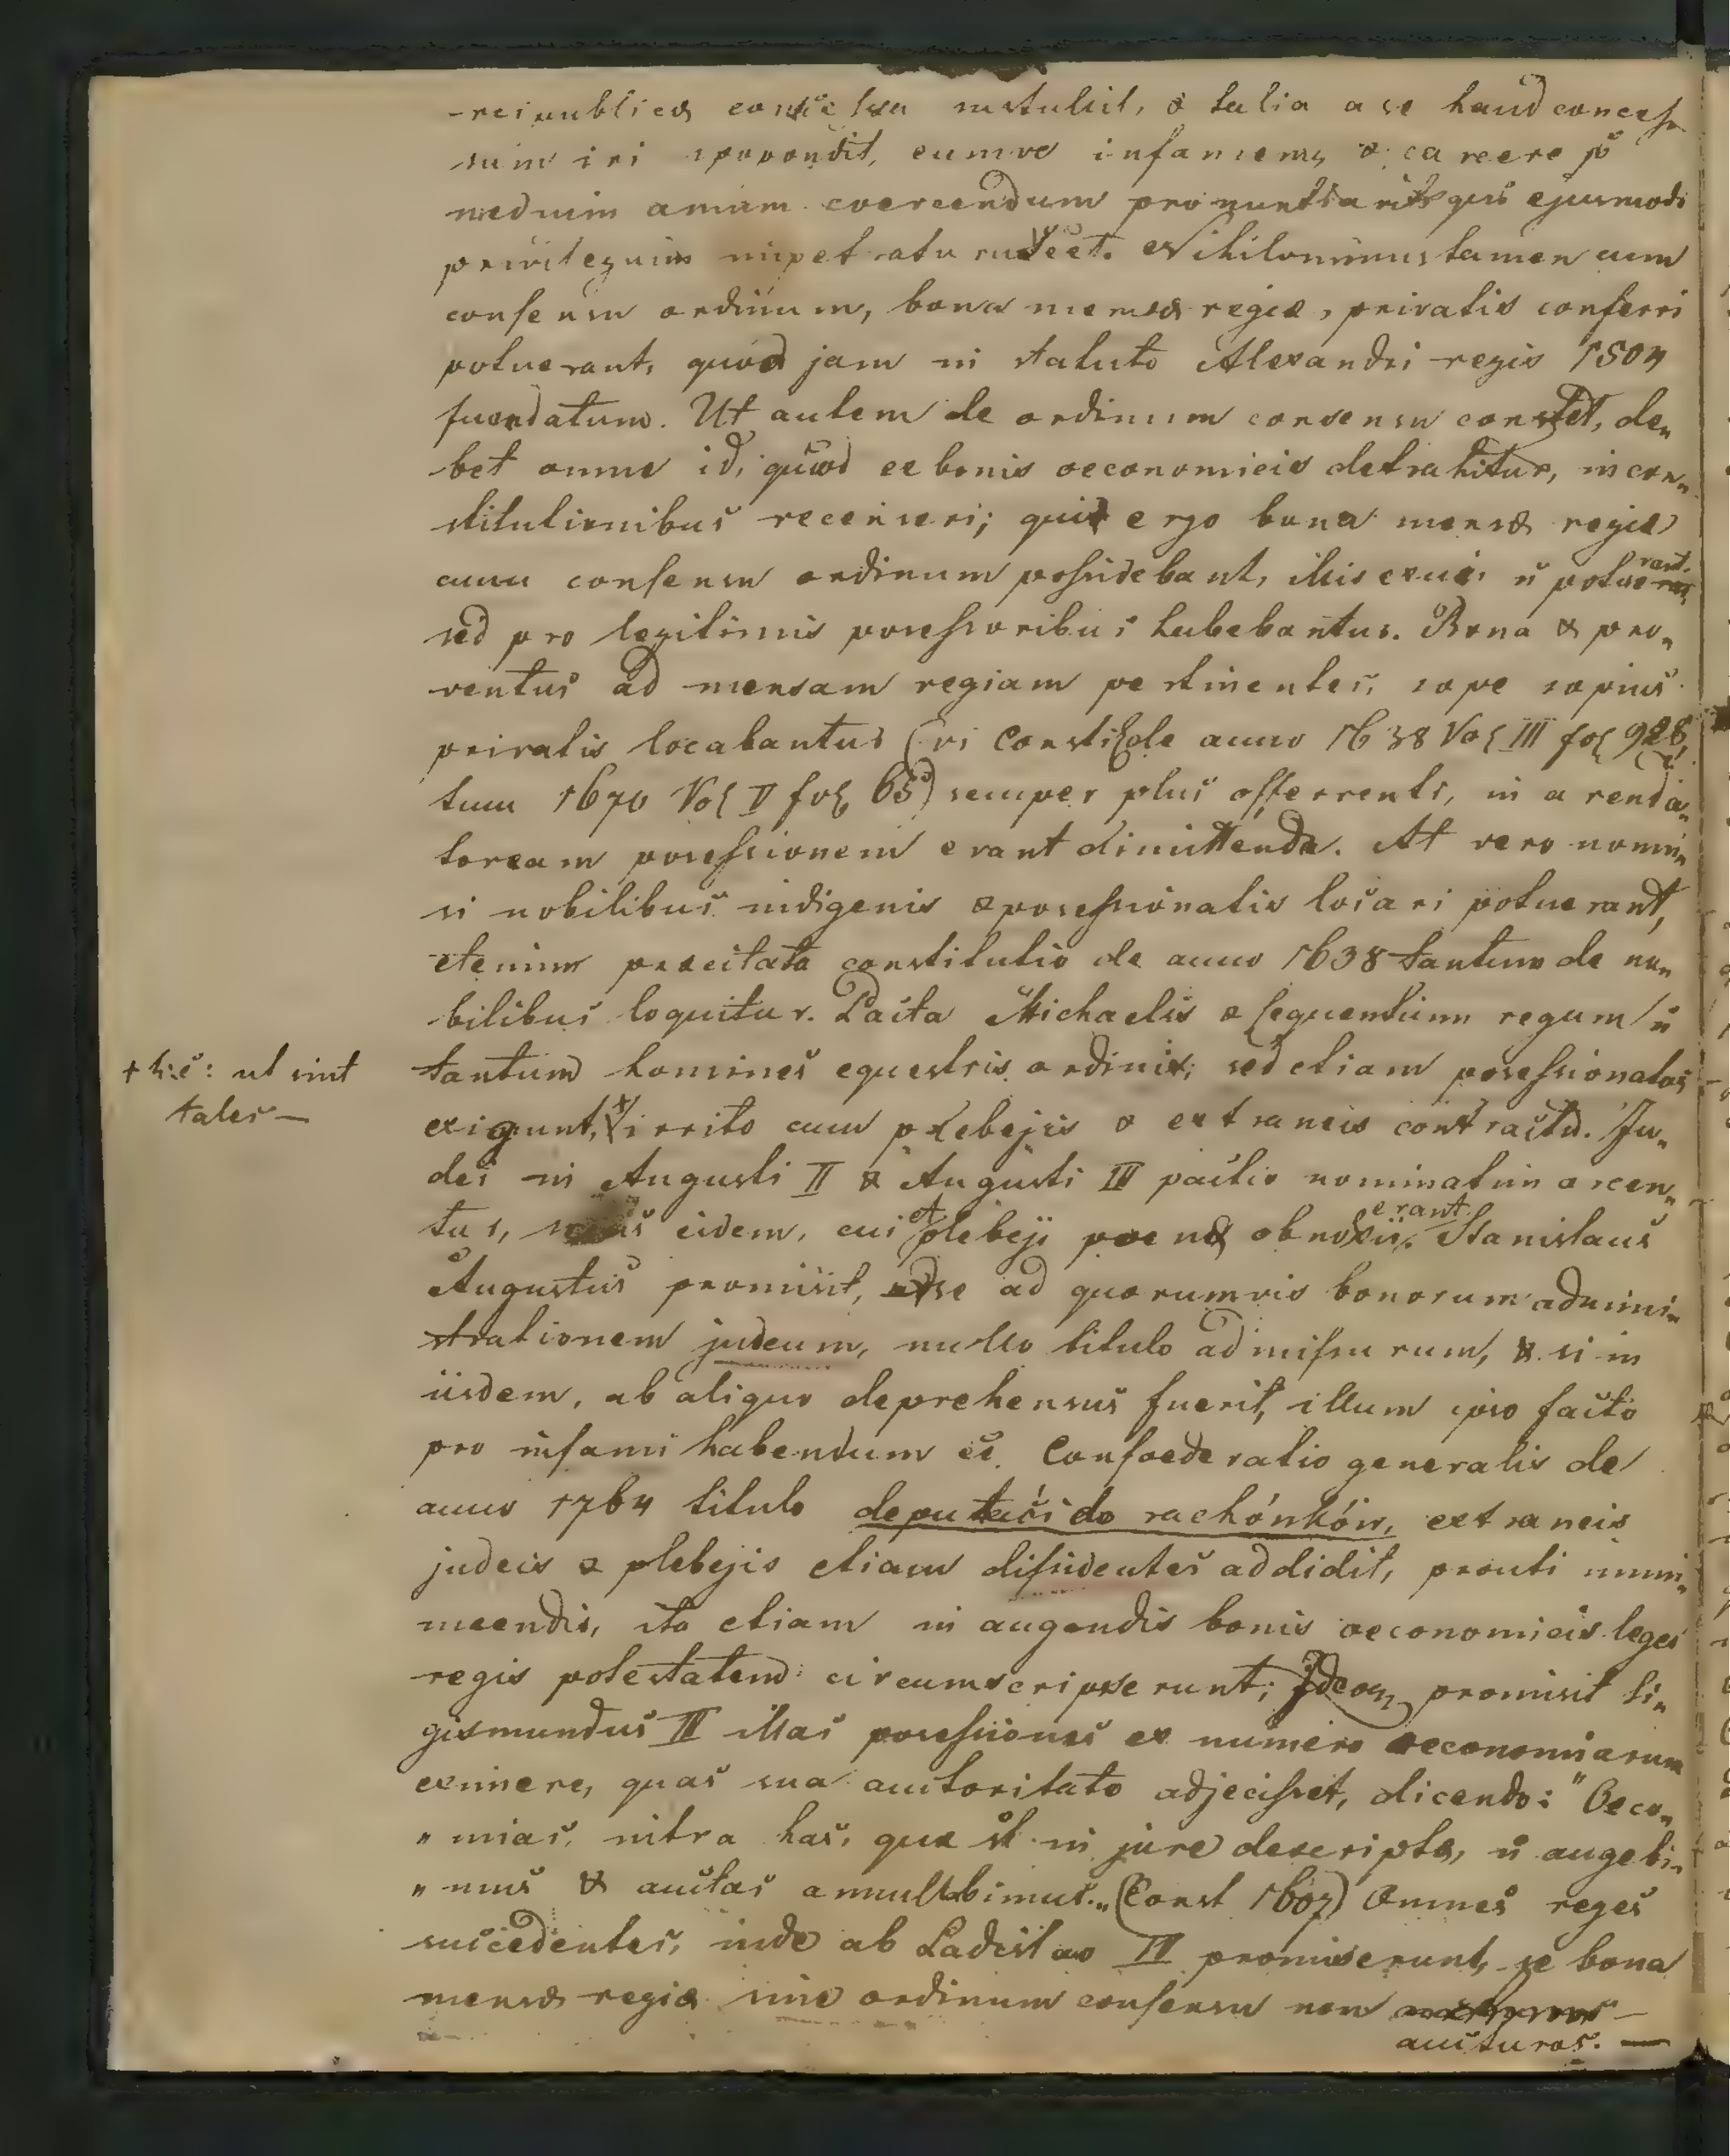 -reipublicæ consulta retulit, & talia a se haud concess
sum iri spopondit, eumve infamem, & carcere p
medium annum coercendum pronuntiavit qui ejusmodi
privilegium impetratu rus eet. Nihilominus tamen cum
consensu ordinum, bona mensæ regiæ, privatis conferri
potuerant, quod jam in statuto Alexandri regis 1504
fundatum. Ut autem de ordinum consensu constet, de„
bet omne id, quod ee bonis oeconomicis detrahitur, in con„
stitutionibus recenseri; qui ergo bona mensæ regiæ
cum consensu ordinum possidebant, illis exui n potuerant.
sed pro legitimis possessoribus habebantur. Bona & pro„
ventus ad mensam regiam pertinentes, sæpe sæpius
privatis locabantur (vi Consti de anno 1638 Vol III fol 928,
tum 1670 Vol V fol, 65) semper plus offerrenti, in arenda„
toream possessionem erant dimittenda. At vero nonni„
si nobilibus indigenis & possessionatis locari potuerant,
etenim præcitata constitutio de anno 1638 tantum de no„
bilibus loquitur. Pacta Michaelis & sequentium regum n
tantum homines equestris ordinis, sed etiam possessionatos
+ h:e: ut sint
tales —
exigunt, + irrito cum plebejis & extraneis contractu. Ju„
dei in Augusti II & Augusti III pactis nominatim arcen„
tur, eidem, cui et plebeji poenæ obnoxii erant. Stanislaus
Augustus promisit, se ad quorumvis bonorum admini„
strationem judeum, nullo titulo admissurum, & si in
iisdem, ab aliquo deprehensus fuerit, illum ipso facto
pro infami habendum ee. Confoederatio generalis de
anno 1764 titulo deputacÿi do rachónków, extraneis
judeis & plebejis etiam dissidentes addidit, prouti immi„
nuendis, ita etiam in augendis bonis oeconomicis leges
regis potestatem circumscripserunt; Ideoq promisit Si„
gismundus III illas possessiones ex numero oeconomiarum
eximere, quas sua auctoritate adjecisset, dicendo: "Oeco„
„mias, ultra has, quæ st in jure descriptæ, n augebi„
„mus & auctas annullabimus.„ (Const 1607) Omnes reges
succedentes, inde ab Ladislao IV promiserunt, se bona
mensæ regiæ sine ordinum consensu non
aucturos. —